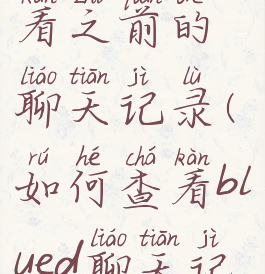 看之前的
liáo tiān jì lù
聊天记录(
rú hé chá kàn
如何查看bl
liáo tiān jì
ued聊天记